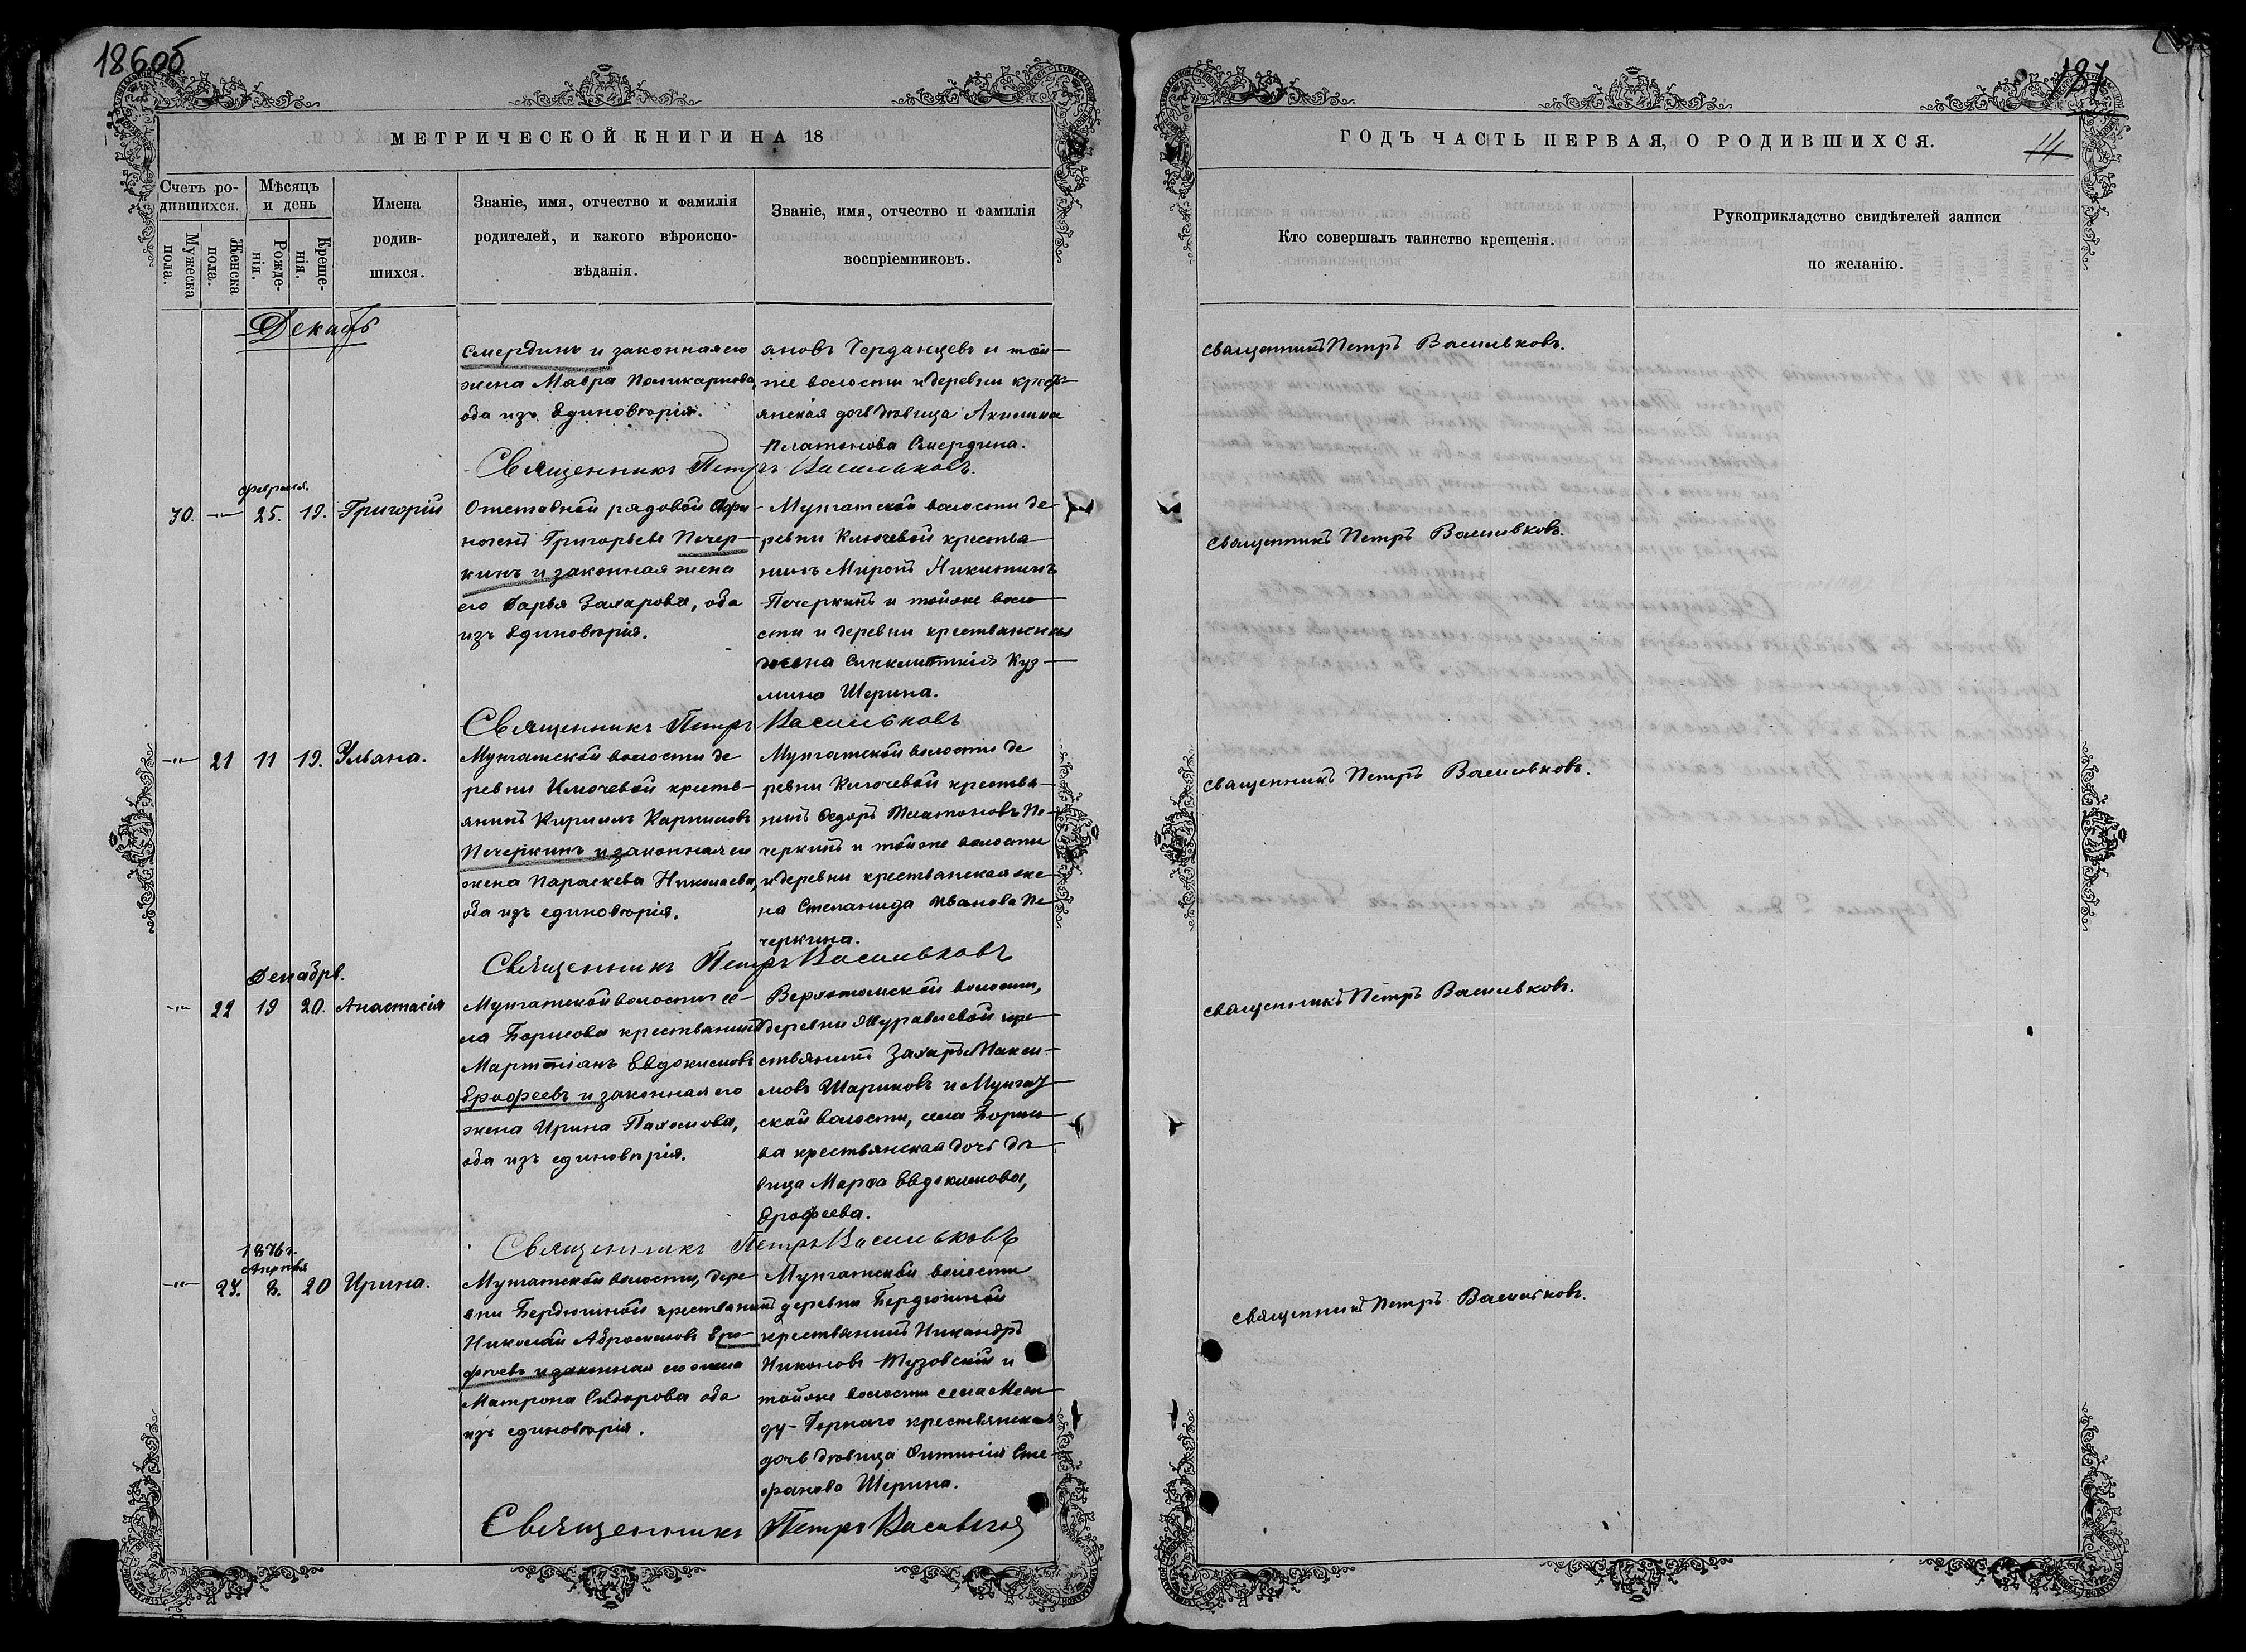 186об
МЕТРИЧЕСКОЙ КНИГИ НА 18
Счетъ ро-
дившихся.
Мужеска
пола.
Женска
пола.
Мѣсяцъ
и день
Рожде-
нія.
Креще-
нія.
Имена
родив-
шихся.
Званіе, имя, отчество и фамилія
родителей, и какого вѣроиспо-
вѣданія.
Званіе, имя, отчество и фамилія
воспріемниковъ.
Декабрь
Смердинъ и законная его
жена Мавра Поликарпова,
оба изъ единовѣрія.
яновъ Черданцевъ и той
же волости и деревни кресть
янская дочь дѣвица Акилина
Платонова Смердина.
Священникъ Петръ Васильковъ.
февраля.
30. —"— 25. 19. Григорій
Отставной рядовой
Григорьевъ Печер—
кинъ и законная жена
его Дарья Захарова, оба
изъ единовѣрія.
Мунгатской волости де
ревни Ключевой крестья
нинъ Миронъ Никитинъ
Печеркинъ и тойже воло
сти и деревни крестьянская
жена Синклитикія Куз—
мина Шерина.
Священникъ Петръ Васильковъ
—"— 21 11 19. Ульяна.
Мунгатской волости де
ревни Ключевой кресть—
янинъ Кириллъ Карпиловъ
Печеркинъ и законная его
жена Параскева Николаева,
оба изъ единовѣрія.
Мунгатской волости де
ревни Ключевой крестья
нинъ Ѳедоръ Платоновъ Пе—
черкинъ и тойже волости
и деревни крестьянская же—
на Степанида Иванова Пе
черкина.
Священникъ Петръ Васильковъ
Декабрь.
—"— 22 19 20. Анастасія
Мунгатской волости се—
ла Борисова крестьянинъ
Мартиніанъ Евдокимовъ
Ерофеевъ и законная его
жена Ирина Пахомова,
оба изъ единовѣрія.
Верхотомской волости,
деревни Журавлевой кре
стьянинъ Захаръ Макси—
мовъ Шариковъ и Мунгат
ской волости, села Борисо—
ва крестьянская дочь дѣ—
вица Марѳа Евдокимова,
Ерофеева.
Священникъ Петръ Васильковъ
1876 г.
Апрѣля
—"— 23. 2. 20 Ирина.
Мунгатской волости, дере
вни Бердюгиной крестьянинъ
Николай Абросимовъ Еро—
фѣевъ и законная его жена
Матрона Сидорова оба
изъ единовѣрія.
Мунгатской волости
деревни Бердюгиной
крестьянинъ Никандръ
Никоновъ Тузовскій и
тойже волости села Меж—
ду-Горнаго крестьянская
дочь дѣвица Фитинія Сте—
фанова Шерина.
Священникъ Петръ Васильковъ
187
14
ГОДЪ ЧАСТЬ ПЕРВАЯ, О РОДИВШИХСЯ.
Кто совершалъ таинство крещенія.
Рукоприкладство свидѣтелей записи
по желанію.
священникъ Петръ Васильковъ.
священникъ Петръ Васильковъ.
священникъ Петръ Васильковъ.
священникъ Петръ Васильковъ.
священникъ Петръ Васильковъ.